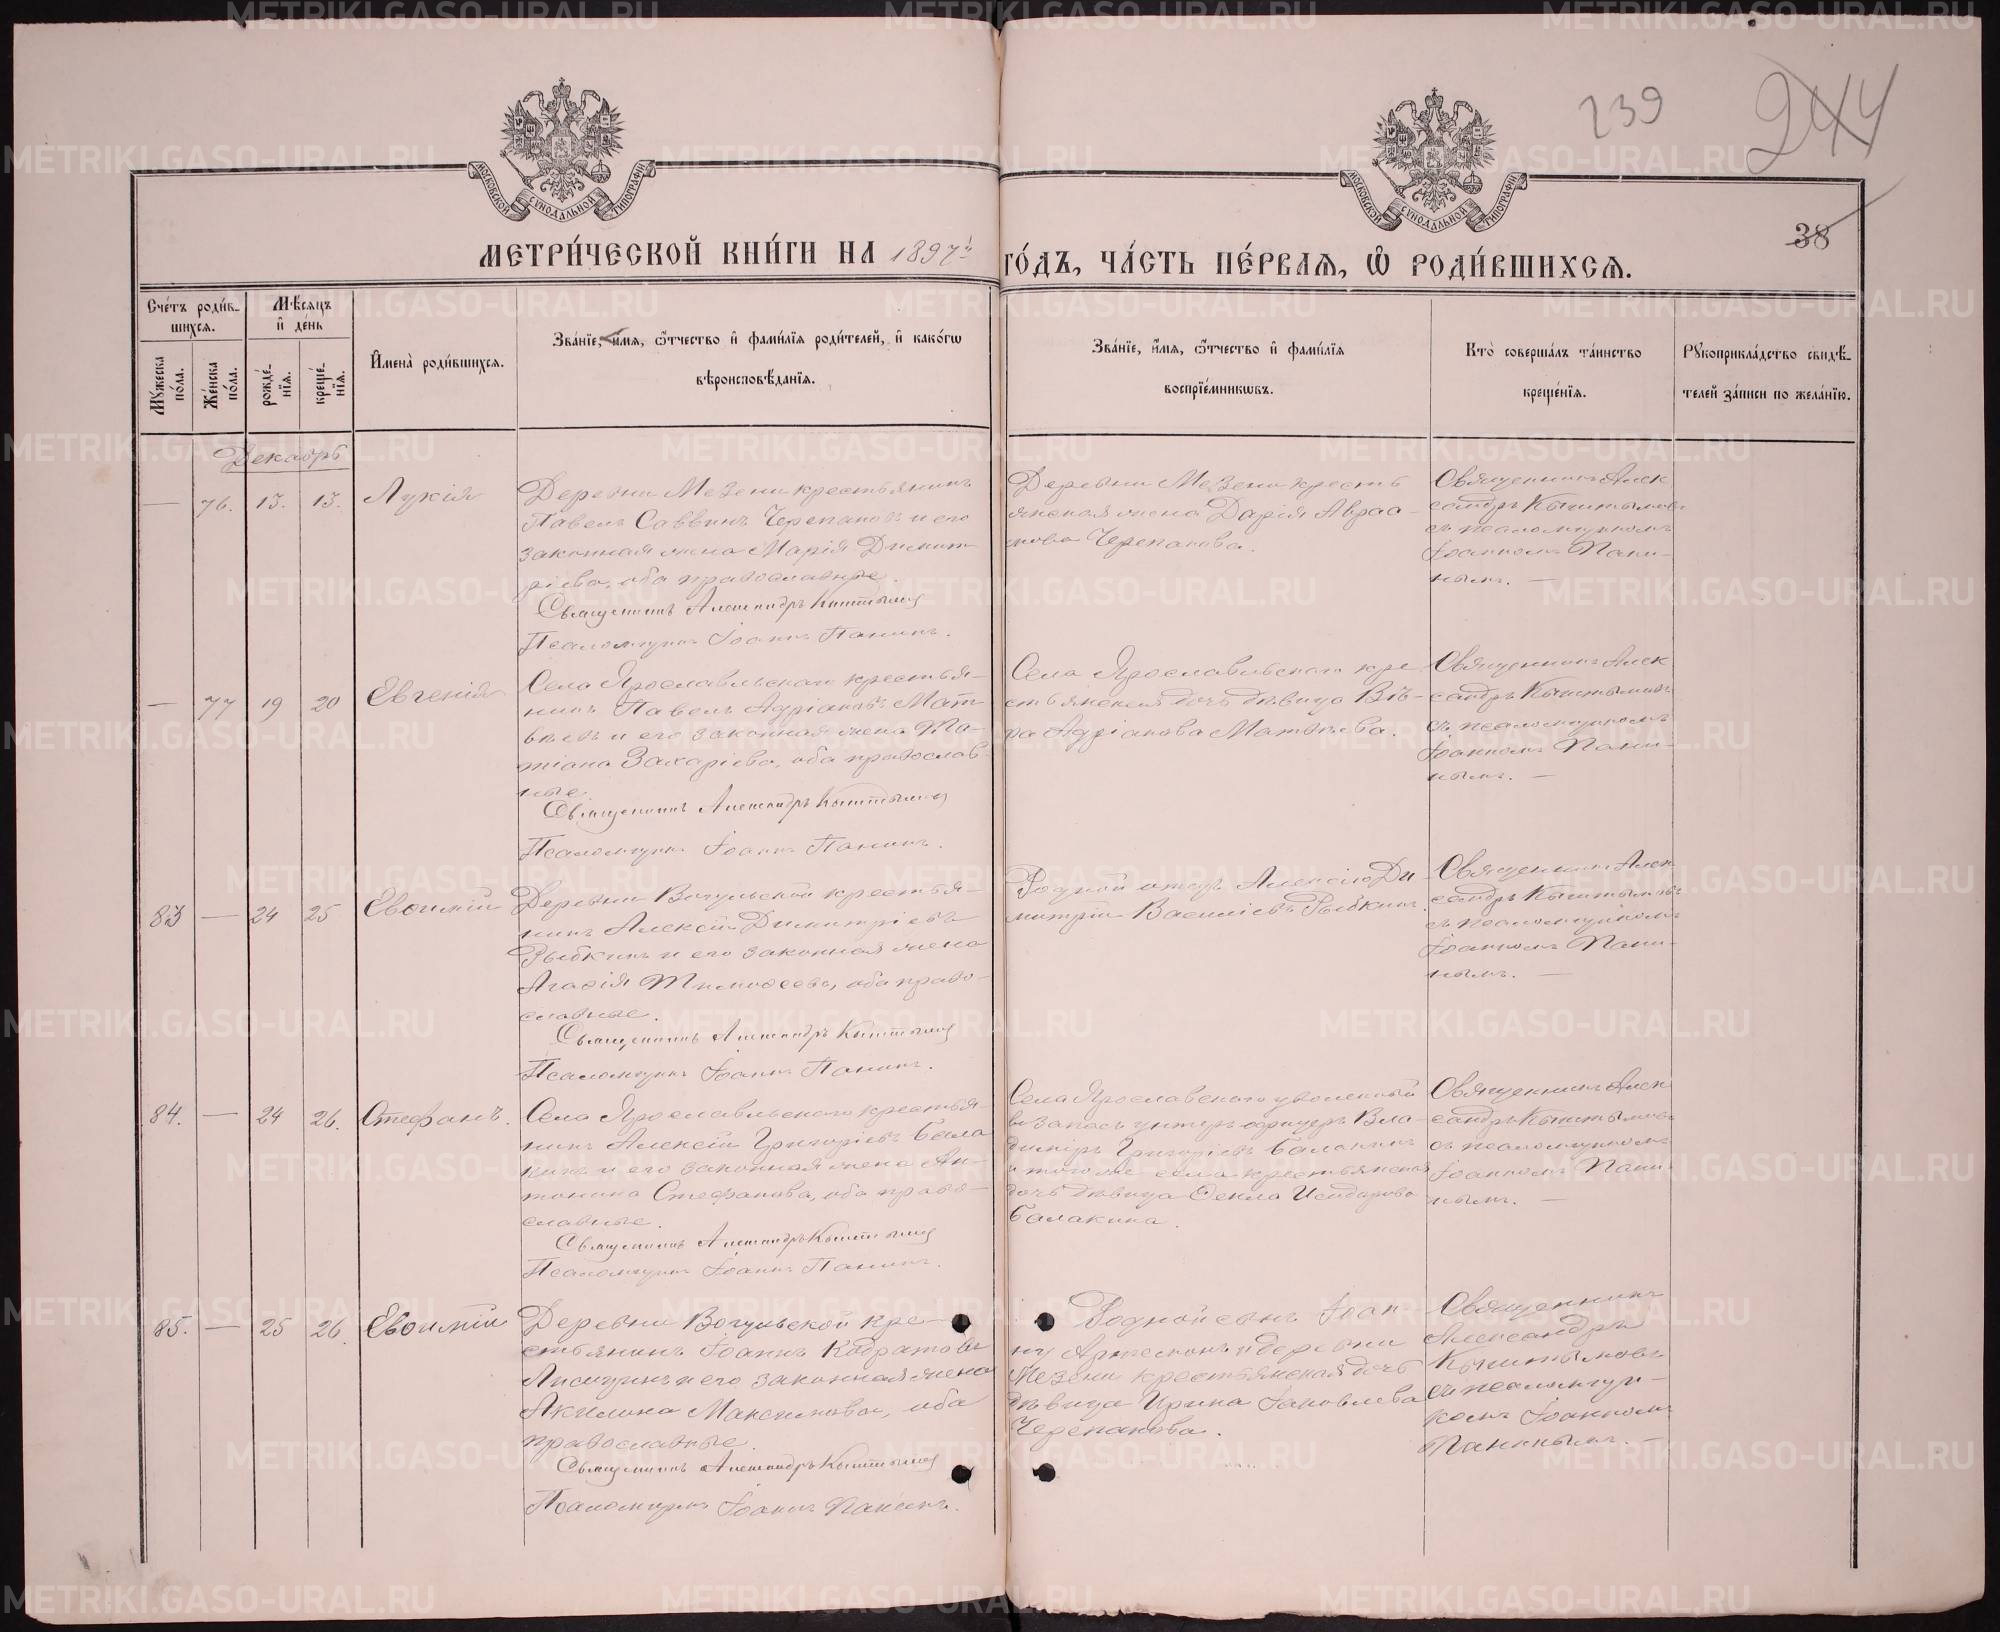 239
244
МОСКОВСКОЙ СѴНОДАЛЬНОЙ ТИПОГРАФІИ
МОСКОВСКОЙ СѴНОДАЛЬНОЙ ТИПОГРАФІИ
38
МЕТРИ́ЧЕСКОЙ КНИ́ГИ НА 1897й ГО́ДЪ, ЧА́СТЬ ПЕ́РВАЯ, Ѡ РОДИ́ВШИХСЯ.
Сче́тъ роди́в-
шихся.
Мѣ́сяцъ
и де́нь
Мꙋ́жеска по́ла.
Же́нска по́ла.
рожде́-
нїя.
креще́-
нїя.
Имена̀ роди́вшихся.
Зва́нїе, и́мя, ѻ҆́тчество и фами́лїя роди́телей, и како́гѡ
вѣроисповѣ́данїя.
Зва́нїе, и́мя, ѻ҆́тчество и фами́лїя
воспрїе́мникѡвъ.
Кто̀ соверша́лъ та́инство
креще́нїя.
Рꙋкоприкла́дство свидѣ́-
телей за́писи по жела́нїю.
Декабрь
— 76. 13. 13. Лукія
Деревни Мезени крестьянинъ
Павелъ Саввинъ Черепановъ и его
законная жена Марія Димит-
ріева, оба православные.
Священникъ Александръ Кыштымов
Псаломщикъ Іоаннъ Панинъ.
Деревни Мезени кресть
янская жена Дарія Авраа-
мова Черепанова.
Священникъ Алек
сандръ Кыштымовъ
съ псаломщикомъ
Іоанномъ Пани-
нымъ. —
— 77 19 20 Евгенія
Села Ярославльскаго крестья-
нинъ Павелъ Адріановъ Мат-
вѣевъ и его законная жена Та-
тіана Захаріева, оба православ
ные.
Священникъ Александръ Кыштымов
Псаломщикъ Іоаннъ Панинъ.
Села Ярославльскаго кре
стьянская дочь дѣвица Вѣ-
ра Адріанова Матвѣева.
Священникъ Алек
сандръ Кыштымовъ
съ псаломщикомъ
Іоанномъ Пани-
нымъ. —
83 — 24 25 Евѳимій
Деревни Вогульской крестья-
нинъ Алексій Димитріевъ
Рыбкинъ и его законная жена
Агаѳія Тимоѳеева, оба право-
славные.
Священникъ Александръ Кыштымов
Псаломщикъ Іоаннъ Панинъ.
Родной отецъ Алексію Ди
митрій Василіевъ Рыбкинъ.
Священникъ Алек
сандръ Кыштымовъ
съ псаломщикомъ
Іоанномъ Пани-
нымъ. —
84. — 24 26. Стефанъ.
Села Ярославльскаго крестья-
нинъ Алексій Григоріевъ Бала
кинъ и его законная жена Ан-
тонина Стефанова, оба право-
славные.
Священникъ Александръ Кыштымов
Псаломщикъ Іоаннъ Панинъ.
Села Ярославскаго уволенный
въ запасъ унтеръ офицеръ Вла-
диміръ Григоріевъ Балакинъ
и того же села крестьянская
дочь дѣвица Ѳекла Исидорова
Балакина.
Священникъ Алек
сандръ Кыштымовъ
съ псаломщикомъ
Іоанномъ Пани-
нымъ. —
85. — 25 26. Евѳимій
Деревни Вогульской кре-
стьянинъ Іоаннъ Кодратовъ
Лисицинъ и его законная жена
Акилина Максимова, оба
православные.
Священникъ Александръ Кыштымов
Псаломщикъ Іоаннъ Панинъ.
Родной сынъ Іоан-
ну и деревни
Мезени крестьянская дочь
дѣвица Ирина Іаковлева
Черепанова.
Священникъ
Александръ
Кыштымовъ
съ псаломщи-
комъ Іоанномъ
Панинымъ. —
METRIKI.GASO-URAL.RU